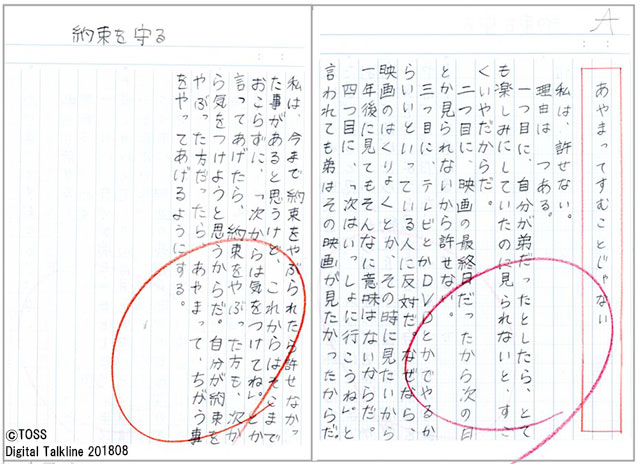 A
あやまってすむことじゃない
私は、許せない。
理由は つある。
一つ目に、自分が弟だったとしたら、とて
も楽しみにしていたのに見られないと、すご
くいやだからだ。
二つ目に、映画の最終日だったから次の日
とか見られないから許せない。
三つ目に、テレビとかDVDとかでやるか
らいいといっている人に反対だ。なぜなら、
映画のはくりょくとか、その時に見たいから
一年後に見てもそんなに意味はないからだ。
四つ目に、「次はいっしょに行こうね。」と
言われても弟はその映画が見たかったからだ
約束を守る
私は、今まで約束をやぶられたら許せなかっ
た事があると思うけど、これからはそこまで
おこらずに、「次からは気をつけてね。」とか
言ってあげたら、約束をやぶった方も、次か
ら気をつけようと思うからだ。自分が約束を
やぶった方だったら、あやまって、ちがう事
をやってあげるようにする。
©TOSS
Digital Talkline 201808